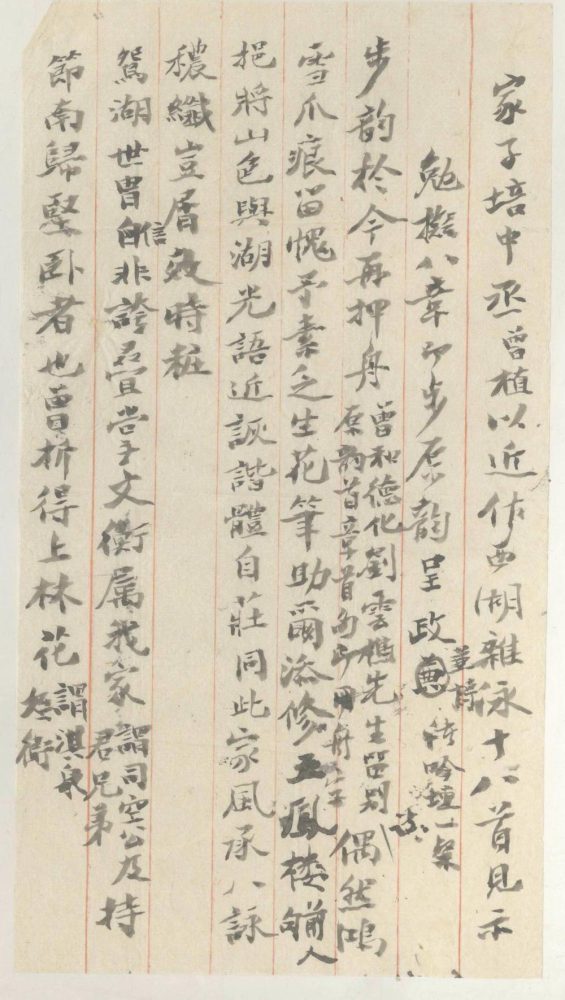 家子培中丞曾植以近作西湖雜詠十八首見示
勉擬八章即步原韻呈政並請待吟壇一粲
步韵於今再押舟曾和德化劉雲樵先生留別原韵首章首句即用舟字偶然鴻
雪爪痕留愧予素乏生花筆助爾添修五鳳樓前人
挹將山色與湖光語近詼諧體自莊同此家風承八詠
穠纖豈屑效時粧
鴛湖世胄信非誇疊掌文衡属我家謂司空公及君兄弟持
節南歸堅臥者也曾折得上林花謂淇泉